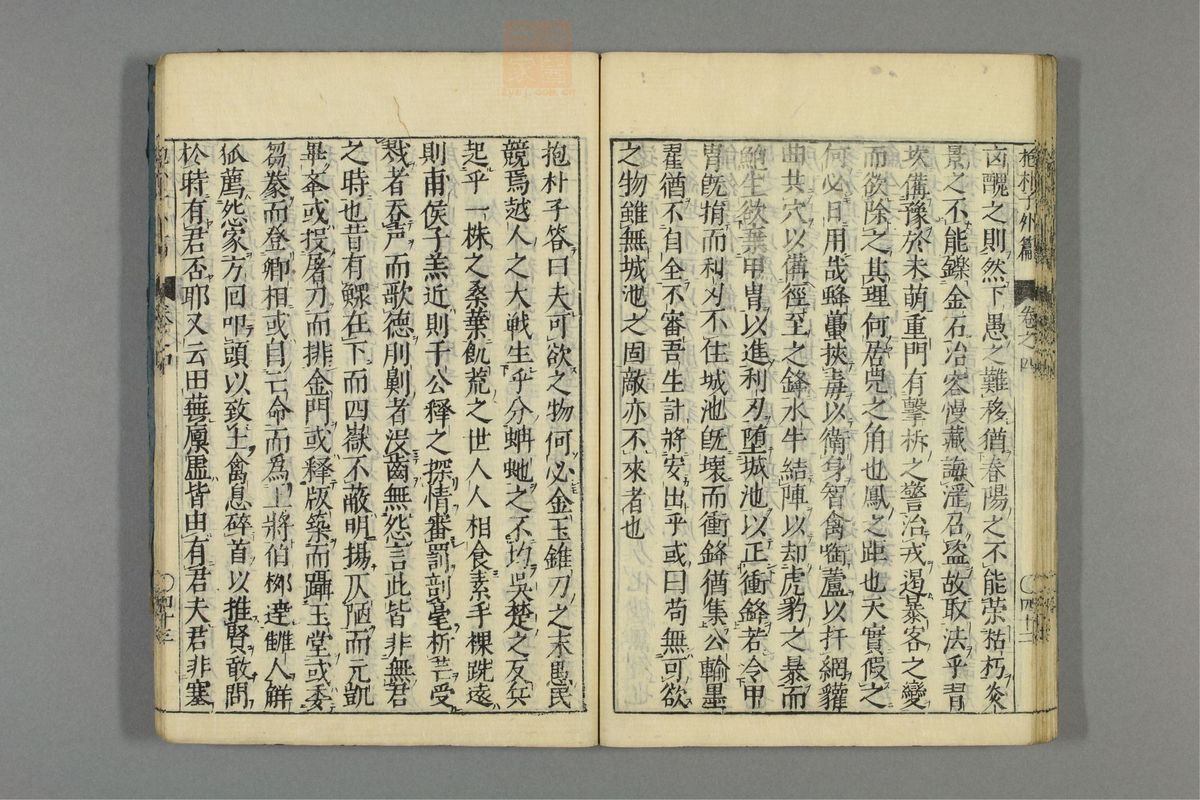 抱朴子外篇 卷之四 〇四十二
卤醜之則然下愚之難移猶春陽之不能榮枯朽炎
景之不能鑠金石冶容慢藏誨淫召盜故取法乎習
坎備豫於未萌重門有擊柝之警治戎遏暴客之變
而欲除之其理何居兕之角也鳳之距也天實假之
何必日用哉蜂蠆挾毒以衛身智禽啣蘆以扞網貛
曲其穴以備徑至之鋒水牛結陣以却虎豹之暴而
鮑生欲棄甲冑以進利刃堕城池以正衝鋒若令甲
冑旣捐而利刃不住城池旣壞而衝鋒猶集公輸墨
翟猶不自全不審吾生計將安出乎或曰苟無可欲
之物雖無城池之固敵亦不來者也
抱朴子答曰夫可欲之物何必金玉錐刀之末愚民
競焉越人之大戦生乎分蚺虵之不均吳楚之反兵
起乎一株之桑葉飢荒之世人人相食素手裸跣遠
則甫侯子羔近則于公釋之探情審罰剖毫析芒受
戮者吞声而歌德刖劓者沒齒無怨言此皆非無君
之時也昔有鰥在下而四嶽不蔽明揚仄陋而元凱
畢舉或投屠刀而排金門或釋版築而躡玉堂或委
芻豢而登卿相或自亡命而爲上將伯柳達讎人解
狐薦怨家方回叩頭以致士禽息碎首以推賢敢問
於時有君否耶又云田蕪廩虛皆由有君夫君非塞
卷之四 〇四十三